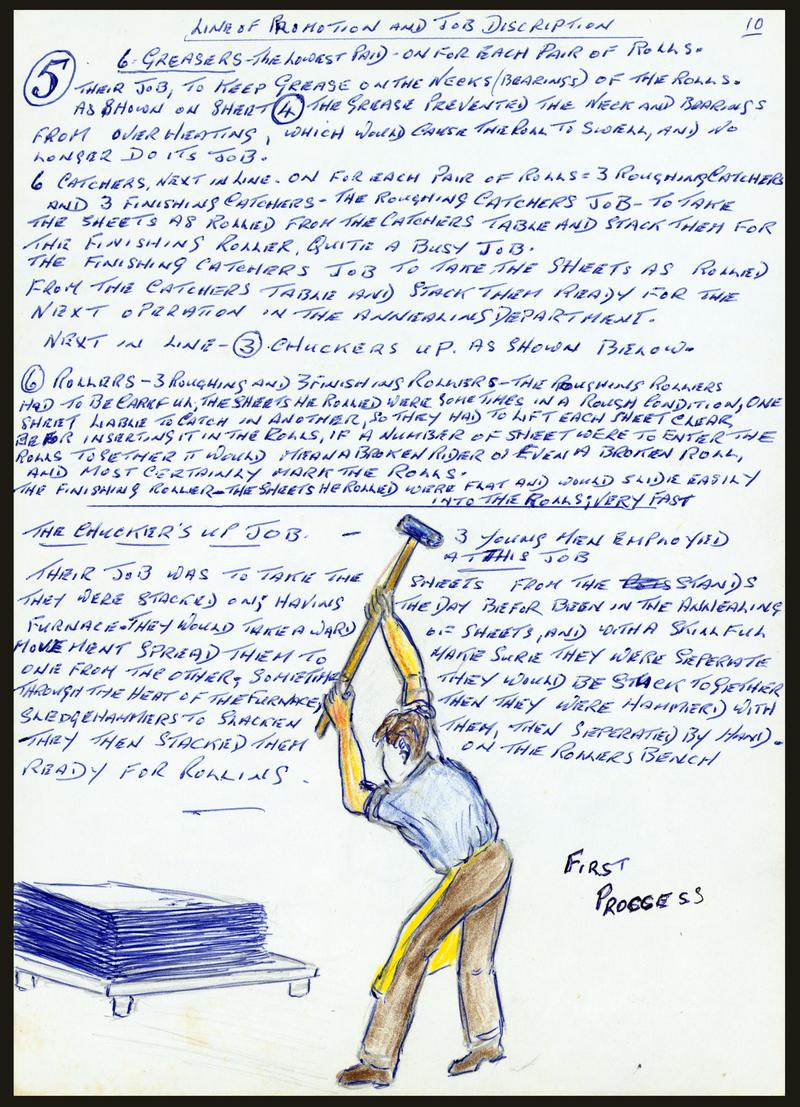 LINE OF PROMOTION AND JOB DISCRIPTION 10
6. GREASERS - THE LOWEST PAID - ON FOR EACH PAIR OF ROLLS.
5 THEIR JOB, TO KEEP GREASE ON THE NECKS (BEARINGS) OF THE ROLLS.
AS SHOWN ON SHEET 4 THE GREASE PREVENTED THE NECK AND BEARINGS
FROM OVER HEATING, WHICH WOULD CAUSE THE ROLL TO SWELL, AND NO
LONGER DO ITS JOB.
6 CATCHERS, NEXT IN LINE - ON FOR EACH PAIR OF ROLLS = 3 ROUGHING CATCHERS
AND 3 FINISHING CATCHERS - THE ROUGHING CATCHERS JOB - TO TAKE
THE SHEETS AS ROLLED FROM THE CATCHERS TABLE AND STACK THEM FOR
THE FINISHING ROLLER, QUITE A BUSY JOB.
THE FINISHING CATCHERS JOB TO TAKE THE SHEETS AS ROLLED
FROM THE CATCHERS TABLE AND STACK THEM READY FOR THE
NEXT OPERATION IN THE ANNEALING DEPARTMENT.
NEXT IN LINE - 3 CHUCKERS UP. AS SHOWN BELOW.
6 ROLLERS - 3 ROUGHING AND 3 FINISHING ROLLERS - THE ROUGHING ROLLERS
HAD TO BE CAREFUL, THE SHEETS HE ROLLED WERE SOMETIMES IN A ROUGH CONDITION, ONE
SHEET LIABLE TO CATCH IN ANOTHER, SO THEY HAD TO LIFT EACH SHEET CLEAR,
BEFOR INSERTING IT IN THE ROLLS, IF A NUMBER OF SHEET WERE TO ENTER THE
ROLLS TOGETHER IT WOULD MEAN A BROKEN RIDER OR EVEN A BROKEN ROLL,
AND MOST CERTAINLY MARK THE ROLLS.
THE FINISHING ROLLER - THE SHEETS HE ROLLED WERE FLAT AND WOULD SLIDE EASILY
INTO THE ROLLS; VERY FAST
THE CHUCKER'S UP JOB. - 3 YOUNG MEN EMPLOYED
AT THIS JOB
THEIR JOB WAS TO TAKE THE SHEETS FROM THE STANDS
THEY WERE STACKED ON; HAVING THE DAY BEFOR BEEN IN THE ANNEALING
FURNACE - THEY WOULD TAKE A WARD OF SHEETS, AND WITH A SKILLFUL
MOVEMENT SPREAD THEM TO MAKE SURE THEY WERE SEPERATE
ONE FROM THE OTHER; SOMETIME THEY WOULD BE STUCK TOGETHER
THROUGH THE HEAT OF THE FURNACE, THEN THEY WERE HAMMERD WITH
SLEDGEHAMMERS TO SLACKEN THEM, THEN SEPERATED BY HAND.
THEY THEN STACKED THEM ON THE ROLLERS BENCH
READY FOR ROLLING.
FIRST
PROCCESS